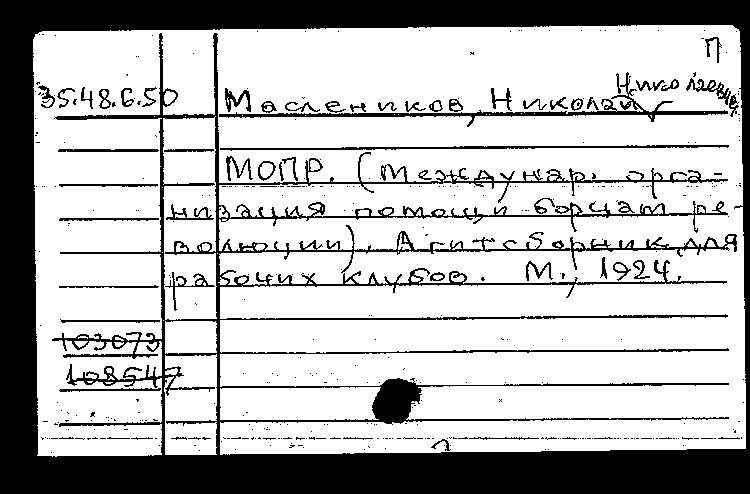 П
Николаевич
35.48.6.50 Маслеников, Николай
МОПР. (Междунар. орга-
низация помощи борцам ре-
волюции). Агитсборник для
рабочих клубов. М., 1924.
103073
108547